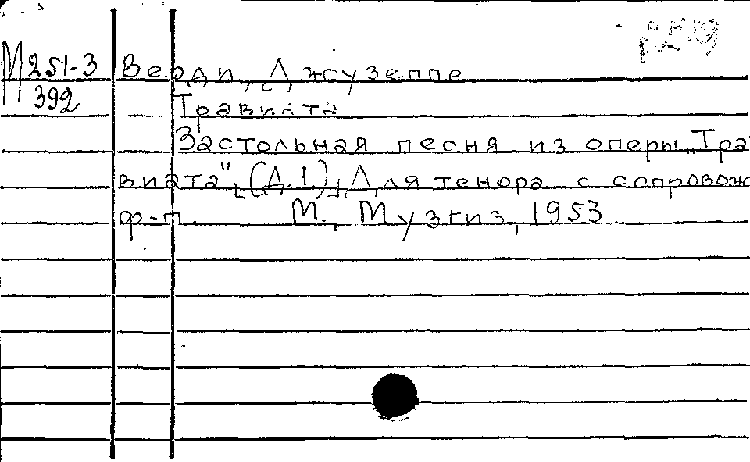 М 251-3 Верди, Джузеппе
392
Травиата
Застольная песня из оперы „Тра
виата", (Д.1), Для тенора с сопровож
ф-п. М., Музгиз, 1953